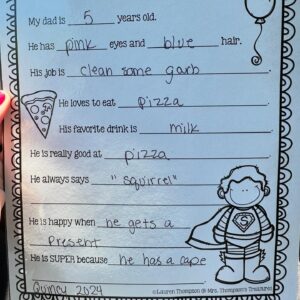 My dad is 5 years old.
He has pink eyes and blue hair.
His job is clean some garb
He loves to eat pizza
His favorite drink is milk
He is really good at pizza
He always says "squirrel"
He is happy when he gets a
present
He is SUPER because he has a cape
Quincy 2024
©Lauren Thompson @ Mrs. Thompson's Treasures